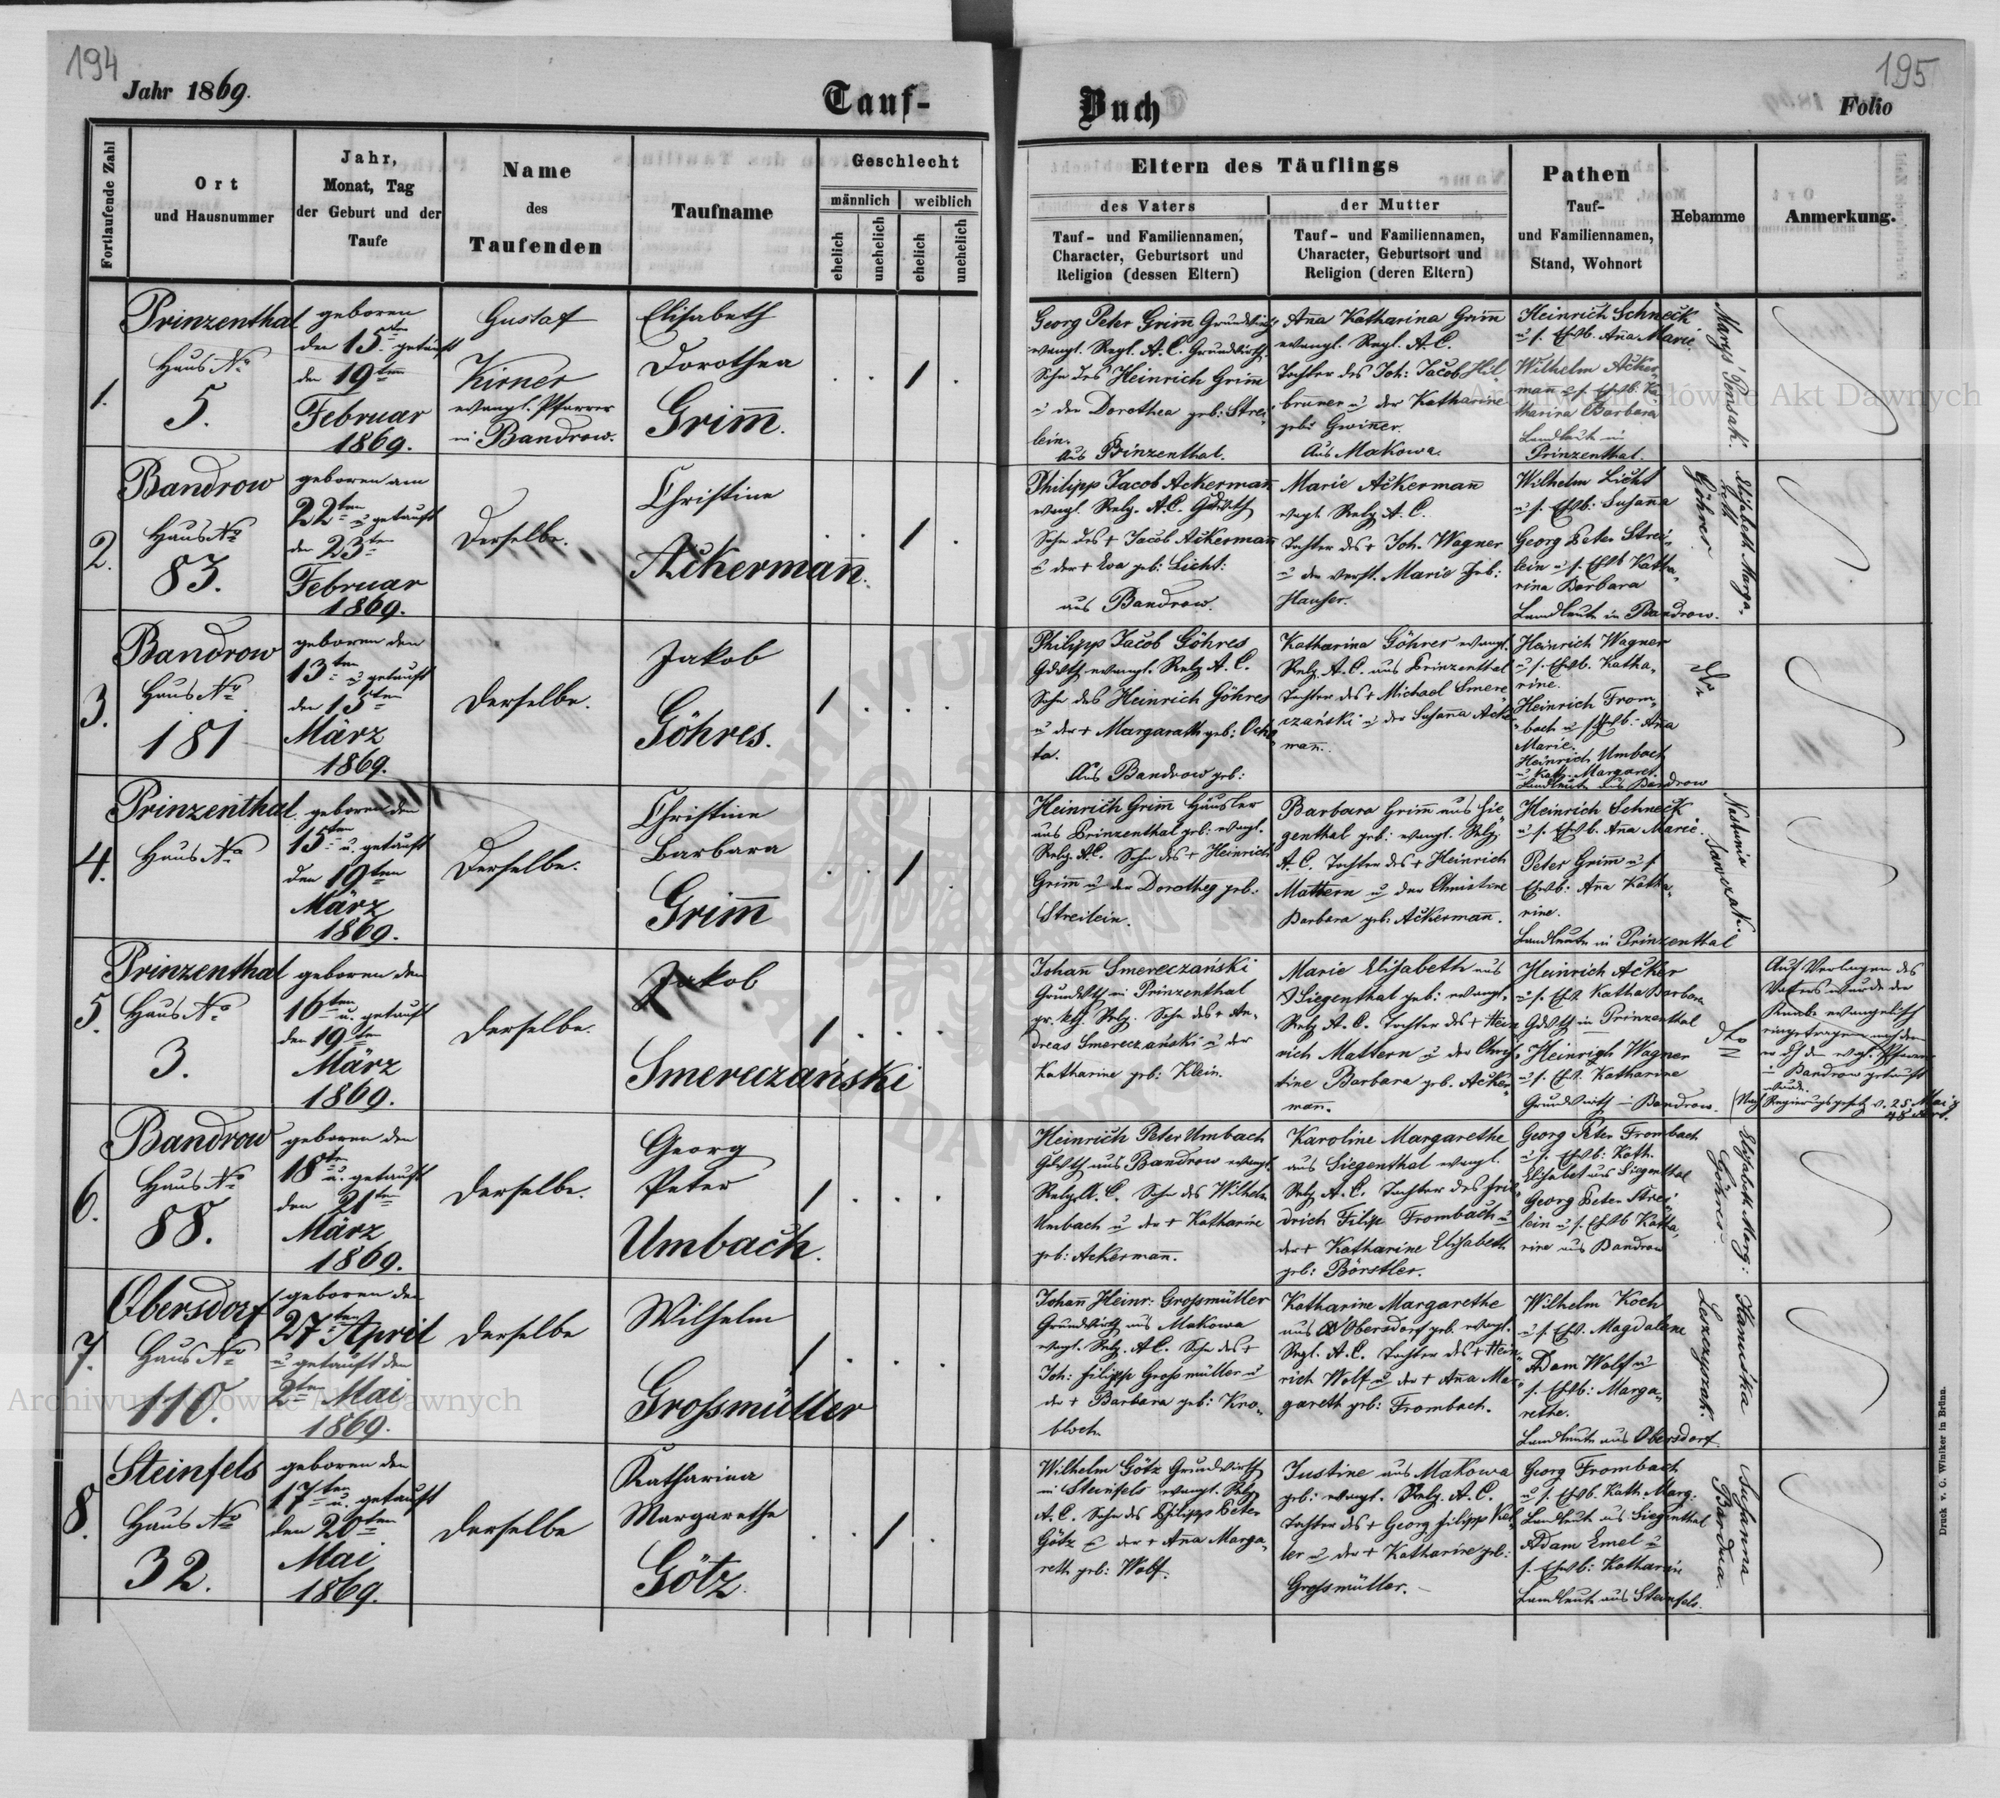 194
195
Jahr 1869.
Tauf-
Buch
Folio
Fortlaufende Zahl
Ort
und Hausnummer
Jahr,
Monat, Tag
der Geburt und der
Taufe
Name
des
Taufenden
Taufname
Geschlecht
männlich
weiblich
ehelich
unehelich
ehelich
unehelich
Eltern des Täuflings
des Vaters
Tauf- und Familiennamen,
Character, Geburtsort und
Religion (dessen Eltern)
der Mutter
Tauf- und Familiennamen,
Character, Geburtsort und
Religion (deren Eltern)
Pathen
Tauf-
und Familiennamen,
Stand, Wohnort
Hebamme
Anmerkung.
1.
Prinzenthal
Haus No
5.
geboren
den 15ten getauft
den 19ten
Februar
1869.
Gustaf
Kirner
evangl. Pfarrer
in Bandrow.
Elisabeth
Dorothea
Grim̄.
Georg Peter Grim̄
evangl. Regl. A. C. Grundwirth.
Sohn des Heinrich Grim̄
u der Dorothea geb: Strei-
lein.
Aus Prinzenthal.
An̄a Katharina Grim̄
evangl. Regl. A. C.
Tochter des Joh: Jacob Hil
brunner u der Katharine
geb: Gwiner.
Aus Makowa.
Heinrich Schneck
u s. Ehwb. An̄a Marie.
Wilhelm Acker-
man̄ u s. Ehwb. Ka
tharina Barbara
Landleute in
Prinzenthal.
2.
Bandrow
Haus No
83.
geboren am
22ten u getauft
den 23ten
Februar
1869.
Derselbe.
Christine
Ackerman̄.
Philipp Jacob Ackerman̄
evngl. Relg. A. C.
Sohn des + Jacob Ackerman̄
u der + Eva geb: Licht:
aus Bandrow.
Marie Ackerman̄
evngl. Relg. A. C.
Tochter des + Joh. Wagner
u der verst. Marie geb:
Hauser.
Wilhelm Licht
u s. Ehwb: Susan̄a
Georg Peter Strei-
lein u s. Ehwb Katha-
rina Barbara
Landleute in Bandrow.
Elisabeth Marga-
reth
Göhrer
3.
Bandrow
Haus No
181
geboren den
13ten u getauft
den 15ten
März
1869.
Derselbe.
Jakob
Göhres.
Philipp Jacob Göhres
evangl. Relg A. C.
Sohn des Heinrich Göhres
u der + Margarath geb: Och
ta.
Aus Bandrow geb:
Katharina Göhrer evangl.
Relg. A. C. aus Prinzenthal
Tochter des + Michael Smere
czański u der Susan̄a Acker
man̄.
Heinrich Wagner
u s. Ehwb. Katha-
rine.
Heinrich From-
bach u s. Ehwb. An̄a
Marie.
Heinrich Umbach
u Kath. Margaret.
Landleute aus Bandrow
4.
Prinzenthal
Haus No
geboren den
15ten u. getauft
den 19ten
März
1869.
Derselbe.
Christine
Barbara
Grim̄
Heinrich Grim̄ Häusler
aus Prinzenthal geb: evangl.
Relg. A. C. Sohn des + Heinrich
Grim̄ u der Dorothea geb:
Streilein.
Barbara Grim̄ aus Sie-
genthal geb: evangl. Relg.
A. C. Tochter des + Heinrich
Mattern u der Christine
Barbara geb: Ackerman̄.
Heinrich Schneck
u s. Ehwb. An̄a Marie.
Peter Grim̄ u s
Ehwb: An̄a Katha-
rine.
Landleute in Prinzenthal
5.
Prinzenthal
Haus No
3.
geboren den
16ten u. getauft
den 19ten
März
1869.
Derselbe.
Jakob
Smereczański
Johan̄ Smereczański
in Prinzenthal
gr. kth. Relg. Sohn des + An-
dreas Smereczański u der
Katharine geb: Klein.
Marie Elisabeth aus
Siegenthal geb: evangl.
Relg A. C. Tochter des + Hein
rich Mattern u der Chris-
tine Barbara geb. Acker-
man̄.
Heinrich Acker
u s. Ehwb. Katha Barbara
in Prinzenthal
Heinrich Wagner
u s. Ehwb. Katharine
Grundwirth in Bandrow.
Auf Verlangen des
Vaters wurde der
Knabe evangelisch
eingetragen
Bandrow getauft
wurde.
6.
Bandrow
Haus No
88.
geboren den
18ten u. getauft
den 21ten
März
1869.
Derselbe.
Georg
Peter
Umbach.
Heinrich Peter Umbach
aus Bandrow evangl.
Relg. A. C. Sohn des Wilhelm
Umbach u der + Katharine
geb: Ackerman̄.
Karoline Margarethe
aus Siegenthal evangl.
Relg A. C. Tochter des Frie-
drich Filipp Frombach u
der + Katharine Elisabeth
geb: Börstler.
Georg Peter Frombach
u s. Ehwb: Kath.
Elisabet aus Siegenthal
Georg Peter Strei-
lein u s. Ehwb Katha-
rine aus Bandrow
Elisabeth Marg:
Göhrer.
7.
Obersdorf
Haus No
110.
geboren den
27ten April
u getauft den
2ten Mai
1869.
Derselbe
Wilhelm
Grossmüller
Johan̄ Heinr: Grossmüller
Grundwirth aus Makowa
evangl. Relg. A. C. Sohn des +
Joh: Filipp Grossmüller u
der + Barbara geb: Kno-
bloch.
Katharine Margarethe
aus Obersdorf geb. evangl.
Regl. A. C. Tochter des + Hein-
rich Wolf u der + An̄a Mar-
gareth geb: Frombach.
Wilhelm Koch
u s. Ehwb. Magdalene
Adam Wolf u
s. Ehwb: Marga-
rethe.
Landleute aus Obersdorf.
8.
Steinfels
Haus No
32.
geboren den
17ten u. getauft
den 20ten
Mai
1869.
Derselbe
Katharina
Margarethe
Götz.
Wilhelm Götz Grundwirth
in Steinfels evangl. Relg
A. C. Sohn des Philipp Peter
Götz u der + An̄a Marga-
reth geb: Wolf.
Justine aus Makowa
geb: evangl. Relg. A. C.
Tochter des + Georg Filipp Kel-
ler u der + Katharine geb:
Grossmüller.
Georg Frombach
u s. Ehwb. Kath. Marg.
Landleute aus Siegenthal
Adam Emel u
s. Ehwb: Katharin
Landleute aus Steinfels.
Susanna
Bardua.
Druck v. G. Winiker in Brünn.
Archiwum Główne Akt Dawnych
Archiwum Główne Akt Dawnych